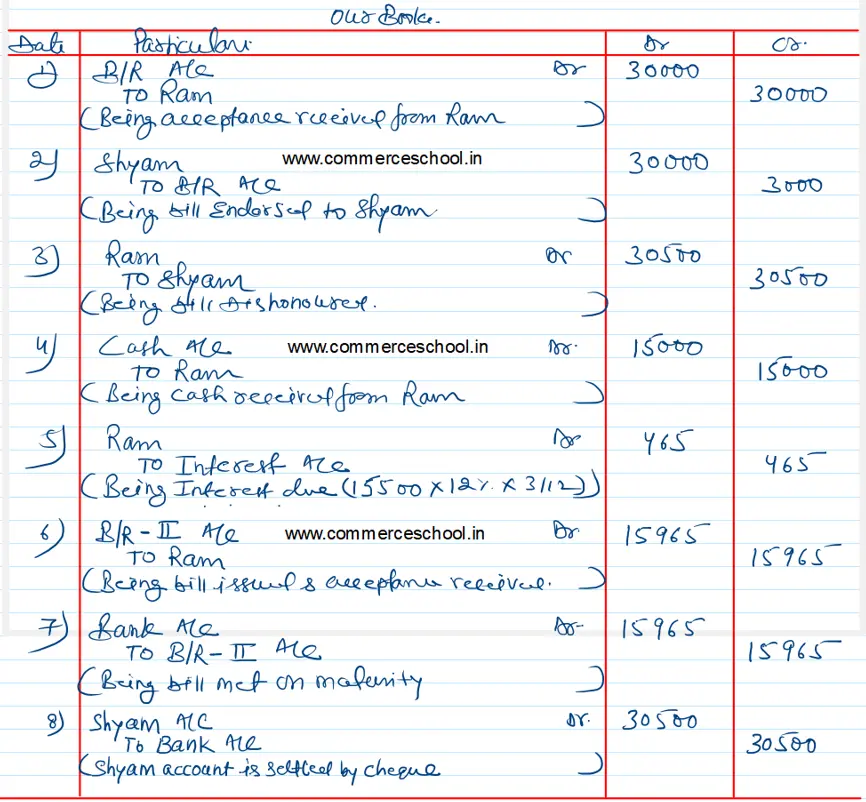 Our Books.
Date Particulars Dr Cr.
1) B/R A/c Dr 30000
To Ram 30000
(Being acceptance received from Ram)
2) Shyam www.commerceschool.in 30000
To B/R A/c 3000
(Being bill Endorsed to Shyam)
3) Ram Dr 30500
To Shyam 30500
(Being bill Dishonoured.)
4) Cash A/c www.commerceschool.in Dr. 15000
To Ram 15000
(Being Cash received from Ram)
5) Ram Dr 465
To Interest A/c 465
(Being Interest due (15500 × 12% × 3/12))
6) B/R - II A/c www.commerceschool.in Dr 15965
To Ram 15965
(Being bill issued & acceptance received.)
7) Bank A/c Dr- 15965
To B/R - II A/c 15965
(Being bill met on maturity)
8) Shyam A/C Dr. 30500
To Bank A/c 30500
(Shyam account is settled by cheque)